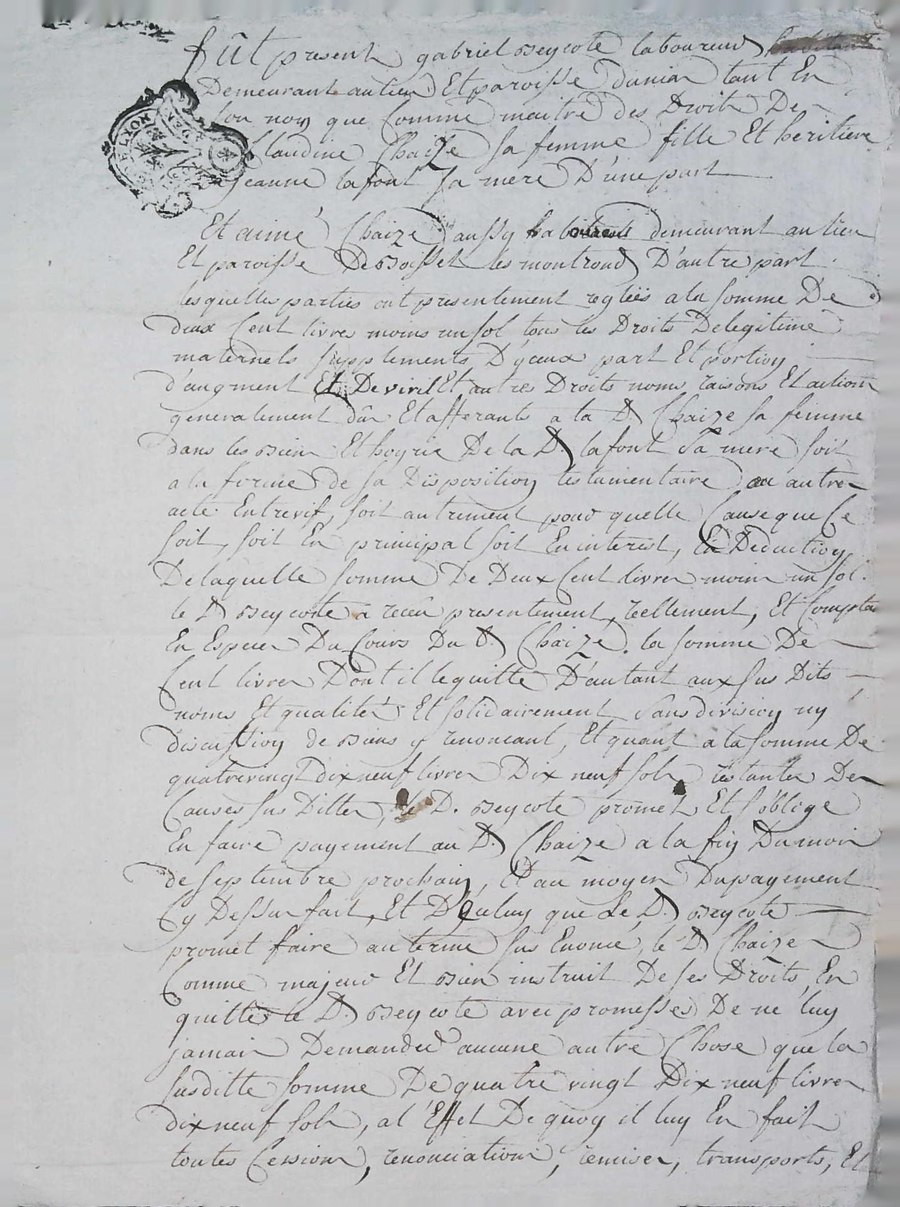 fût present gabriel Beycote laboureur
Demeurant au lieu Et paroisse Dunian tant En
son nom que Comme maitre des Droits De
Claudine Chaize sa femme fille Et heritiere
Jeanne lafont sa mere D'une part
Et aimé Chaize aussy habitant demeurant au lieu
Et paroisse De Boisset les montrond D'autre part
lesquelles parties ont presentement regleés a la somme De
deux Cent livres moins un sol tous les Droits De legitime
maternels supplements D'yceux part Et portion
d'augment Et De viril Et autres Droits noms raisons Et actions
generalement dûs Et afferants a la D. Chaize sa femme
dans les Biens Et hoyrie De la D. lafont sa mere soit
a la forme de sa Disposition testamentaire ou autre
acte Entrevif, soit autrement pour quelle Cause que Ce
soit, soit En principal soit En interest, En Deduction
De laquelle somme De Deux Cent livres moins un sol.
le D. Beycote a reçeu presentement, réellement, Et Comptant
En Especes Du Cours Du D. Chaize. la somme De
Cent livres Dont il le quitte D'autant aux sus Dits
noms Et qualités Et solidairement sans division ny
discussion de Biens y renoncant, Et quant a la somme De
quatrevingt dix neuf livres Dix neuf sols restantes Des
Causes sus Dittes, le D. Beycote promet Et s'oblige
En faire payement au D. Chaize a la fin Du mois
de septembre prochain, Et au moyen Du payement
Cy Dessus fait, Et D'Eceluy que Le D. Beycote
promet faire au terme sus Enoncé, le D. Chaize
Comme majeur Et Bien instruit De ses Droits, En
quitte le D. Beycote avec promesses De ne luy
jamais Demander aucune autre Chose que la
susditte somme De quatre vingt Dix neuf livres
dix neuf sols, a l'Effet De quoy il luy En fait
toutes Cessions, renonciations, remises, transports, Et